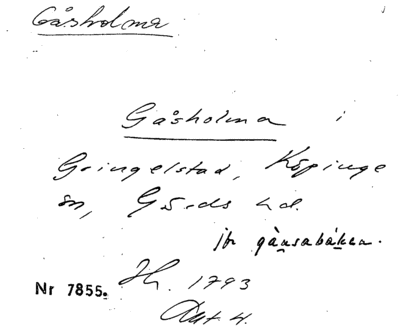 Gåsholma
Gåsholma i
Gringelstad, Köpinge
sn, Gärds hd.
jfr gåusabáken.
Hr. 1793
Nr 7855.
Akt 4.